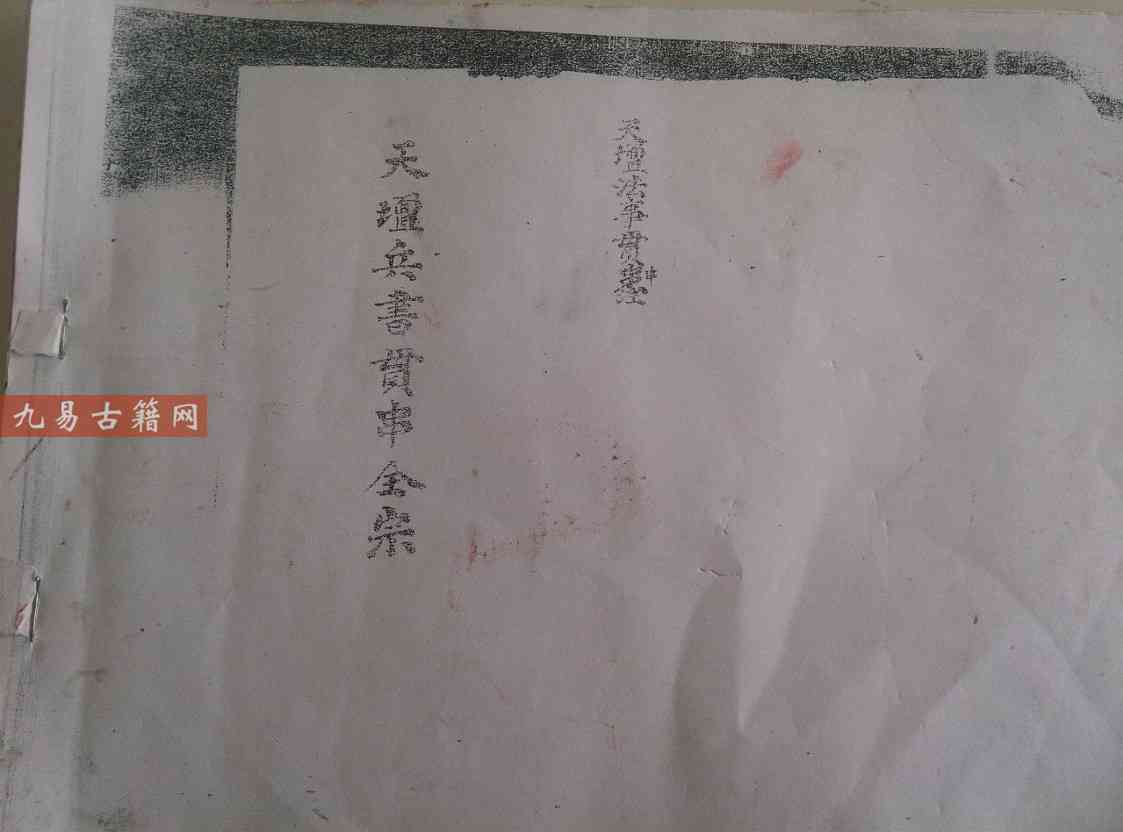 天壇法事貫
天壇兵書貫串全宗
九易古籍网